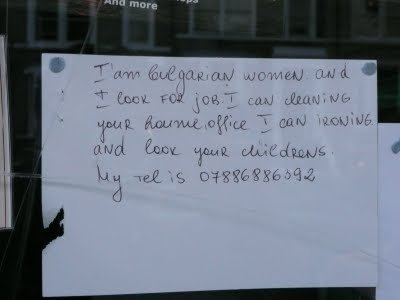 And more
I am bulgarian women and
I look for job. I can cleaning
your houme, office I can ironing
and look your childrens.
My Tel is 07886886392